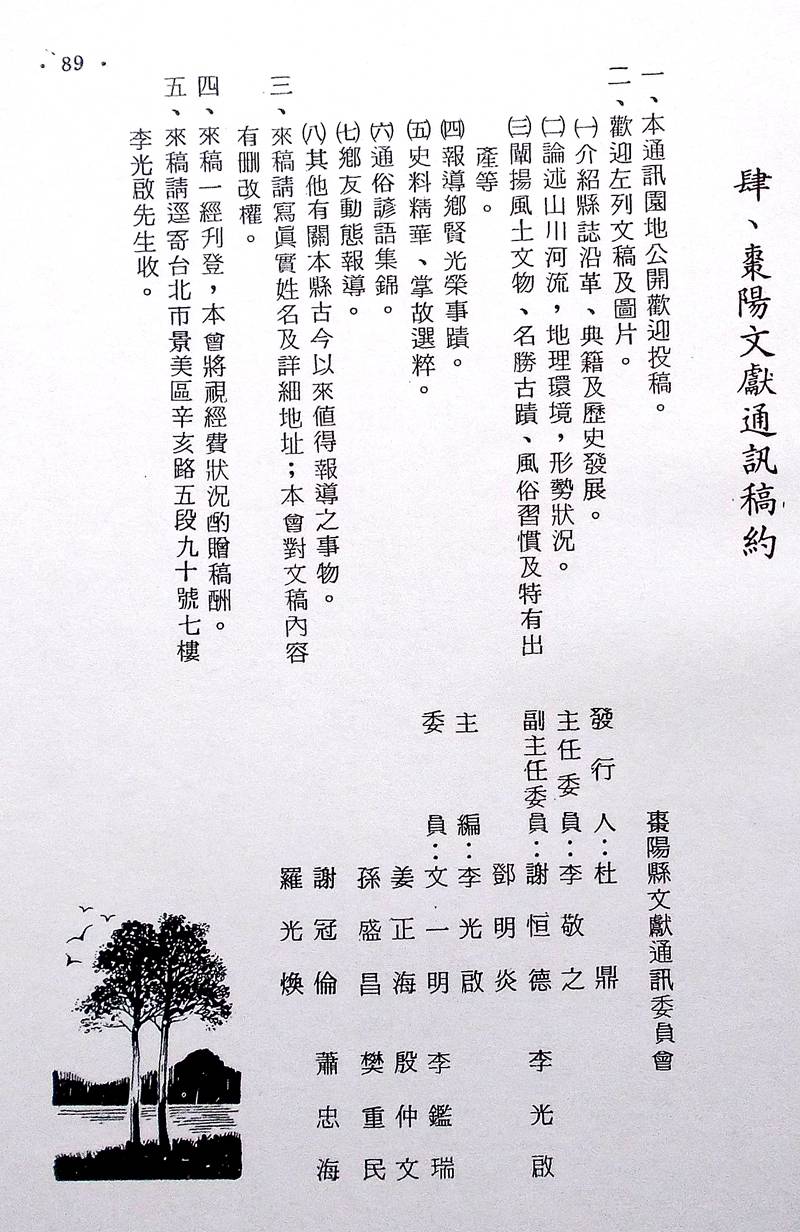 肆、棗陽文獻通訊稿約
一、本通訊園地公開歡迎投稿。
二、歡迎左列文稿及圖片。
㈠介紹縣誌沿革、典籍及歷史發展。
㈡論述山川河流，地理環境，形勢狀況。
㈢闡揚風土文物、名勝古蹟、風俗習慣及特有出
產等。
㈣報導鄉賢光榮事蹟。
㈤史料精華、掌故選粹。
㈥通俗諺語集錦。
㈦鄉友動態報導。
㈧其他有關本縣古今以來值得報導之事物。
三、來稿請寫眞實姓名及詳細地址；本會對文稿內容
有刪改權。
四、來稿一經刋登，本會將視經費狀況酌贈稿酬。
五、來稿請逕寄台北市景美區辛亥路五段九十號七樓
李光啟先生收。
棗陽縣文獻通訊委員會
發行人：杜鼎
主任委員：李敬之
副主任委員：謝恒德　李光啟
鄧明炎
主編：李光啟
委員：文一明　李鑑瑞
姜正海　殷仲文
孫盛昌　樊重民
謝冠倫　蕭忠海
羅光煥
·89·